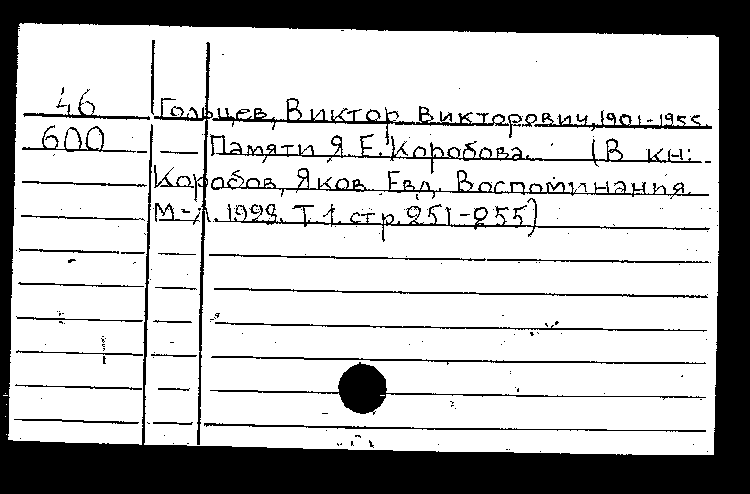 46 Гольцев, Виктор Викторович, 1901-1955.
600 Памяти Я.Е. Коробова. (В кн:
Коробов, Яков Евд. Воспоминания.
М.-Л. 1928. Т. 1. стр. 251-255)